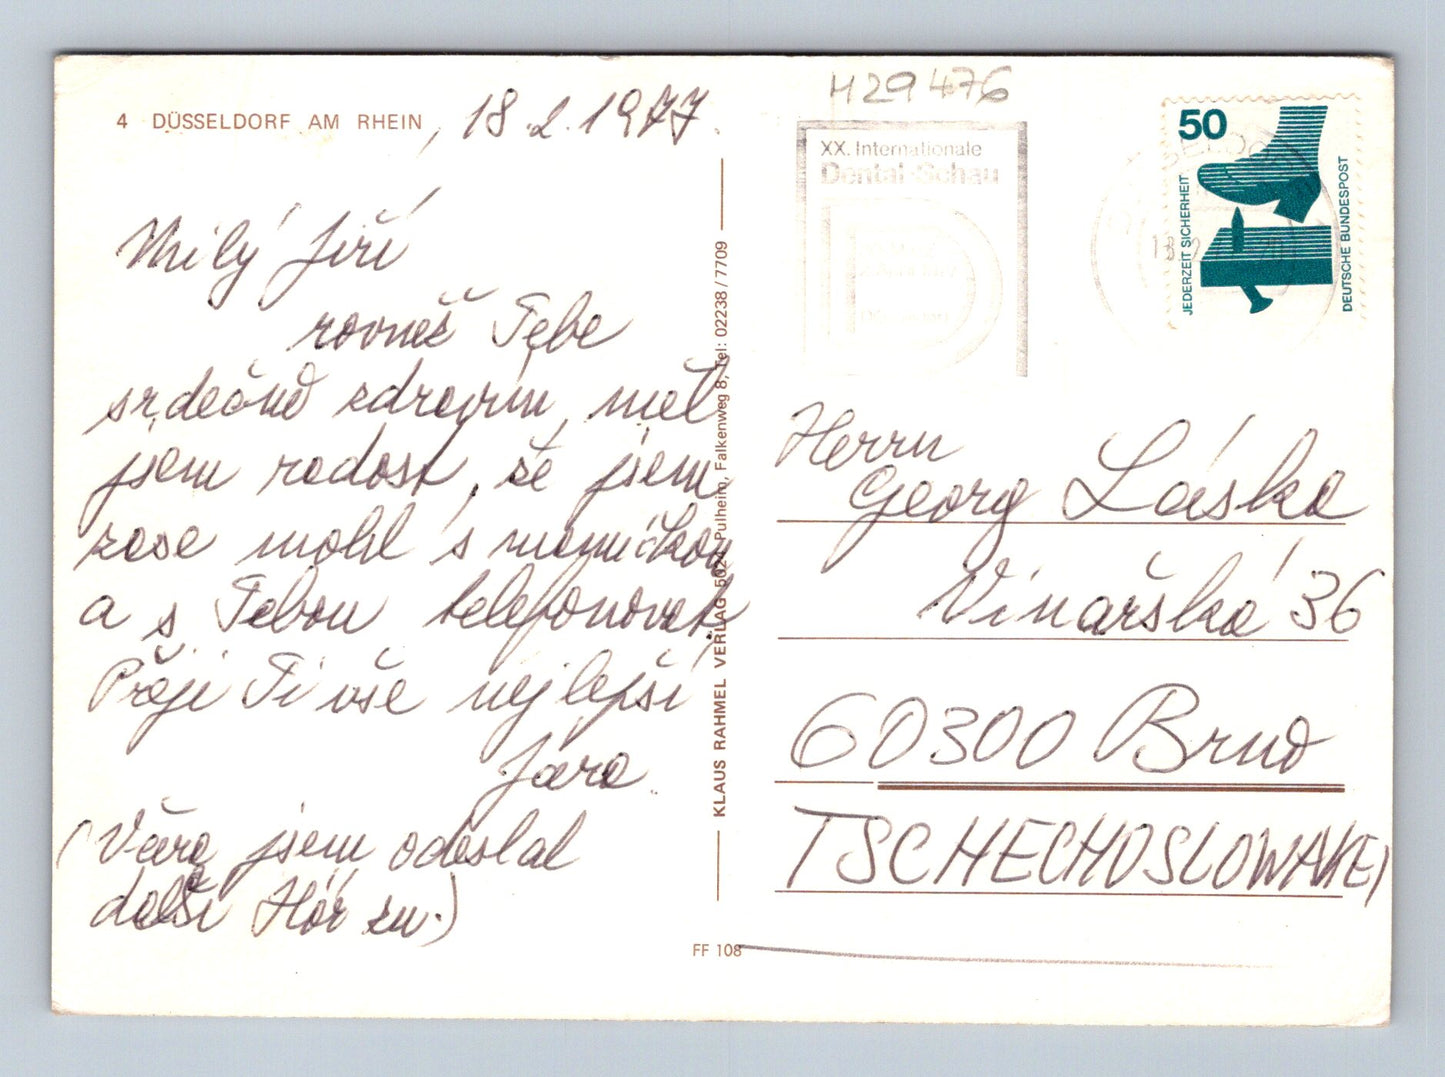 4 DÜSSELDORF AM RHEIN, 18.2.1977.
Milý Jiří
rovněž Tebe
srdečně zdravím, měl
jsem radost, že jsem
zase mohl s maničkou
a s Tebou telefonovat,
Přeji Ti vše nejlepší
Jára.
(Včera jsem odeslal
další Hör zu.)
KLAUS RAHMEL VERLAG 5024 Pulheim, Falkenweg 8, Tel: 02238/7709
FF 108
H29476
XX. Internationale
Dental-Schau
50
JEDERZEIT SICHERHEIT
DEUTSCHE BUNDESPOST
Herrn
Georg Láska
Vinařská 36
60300 Brno
TSCHECHOSLOWAKEI